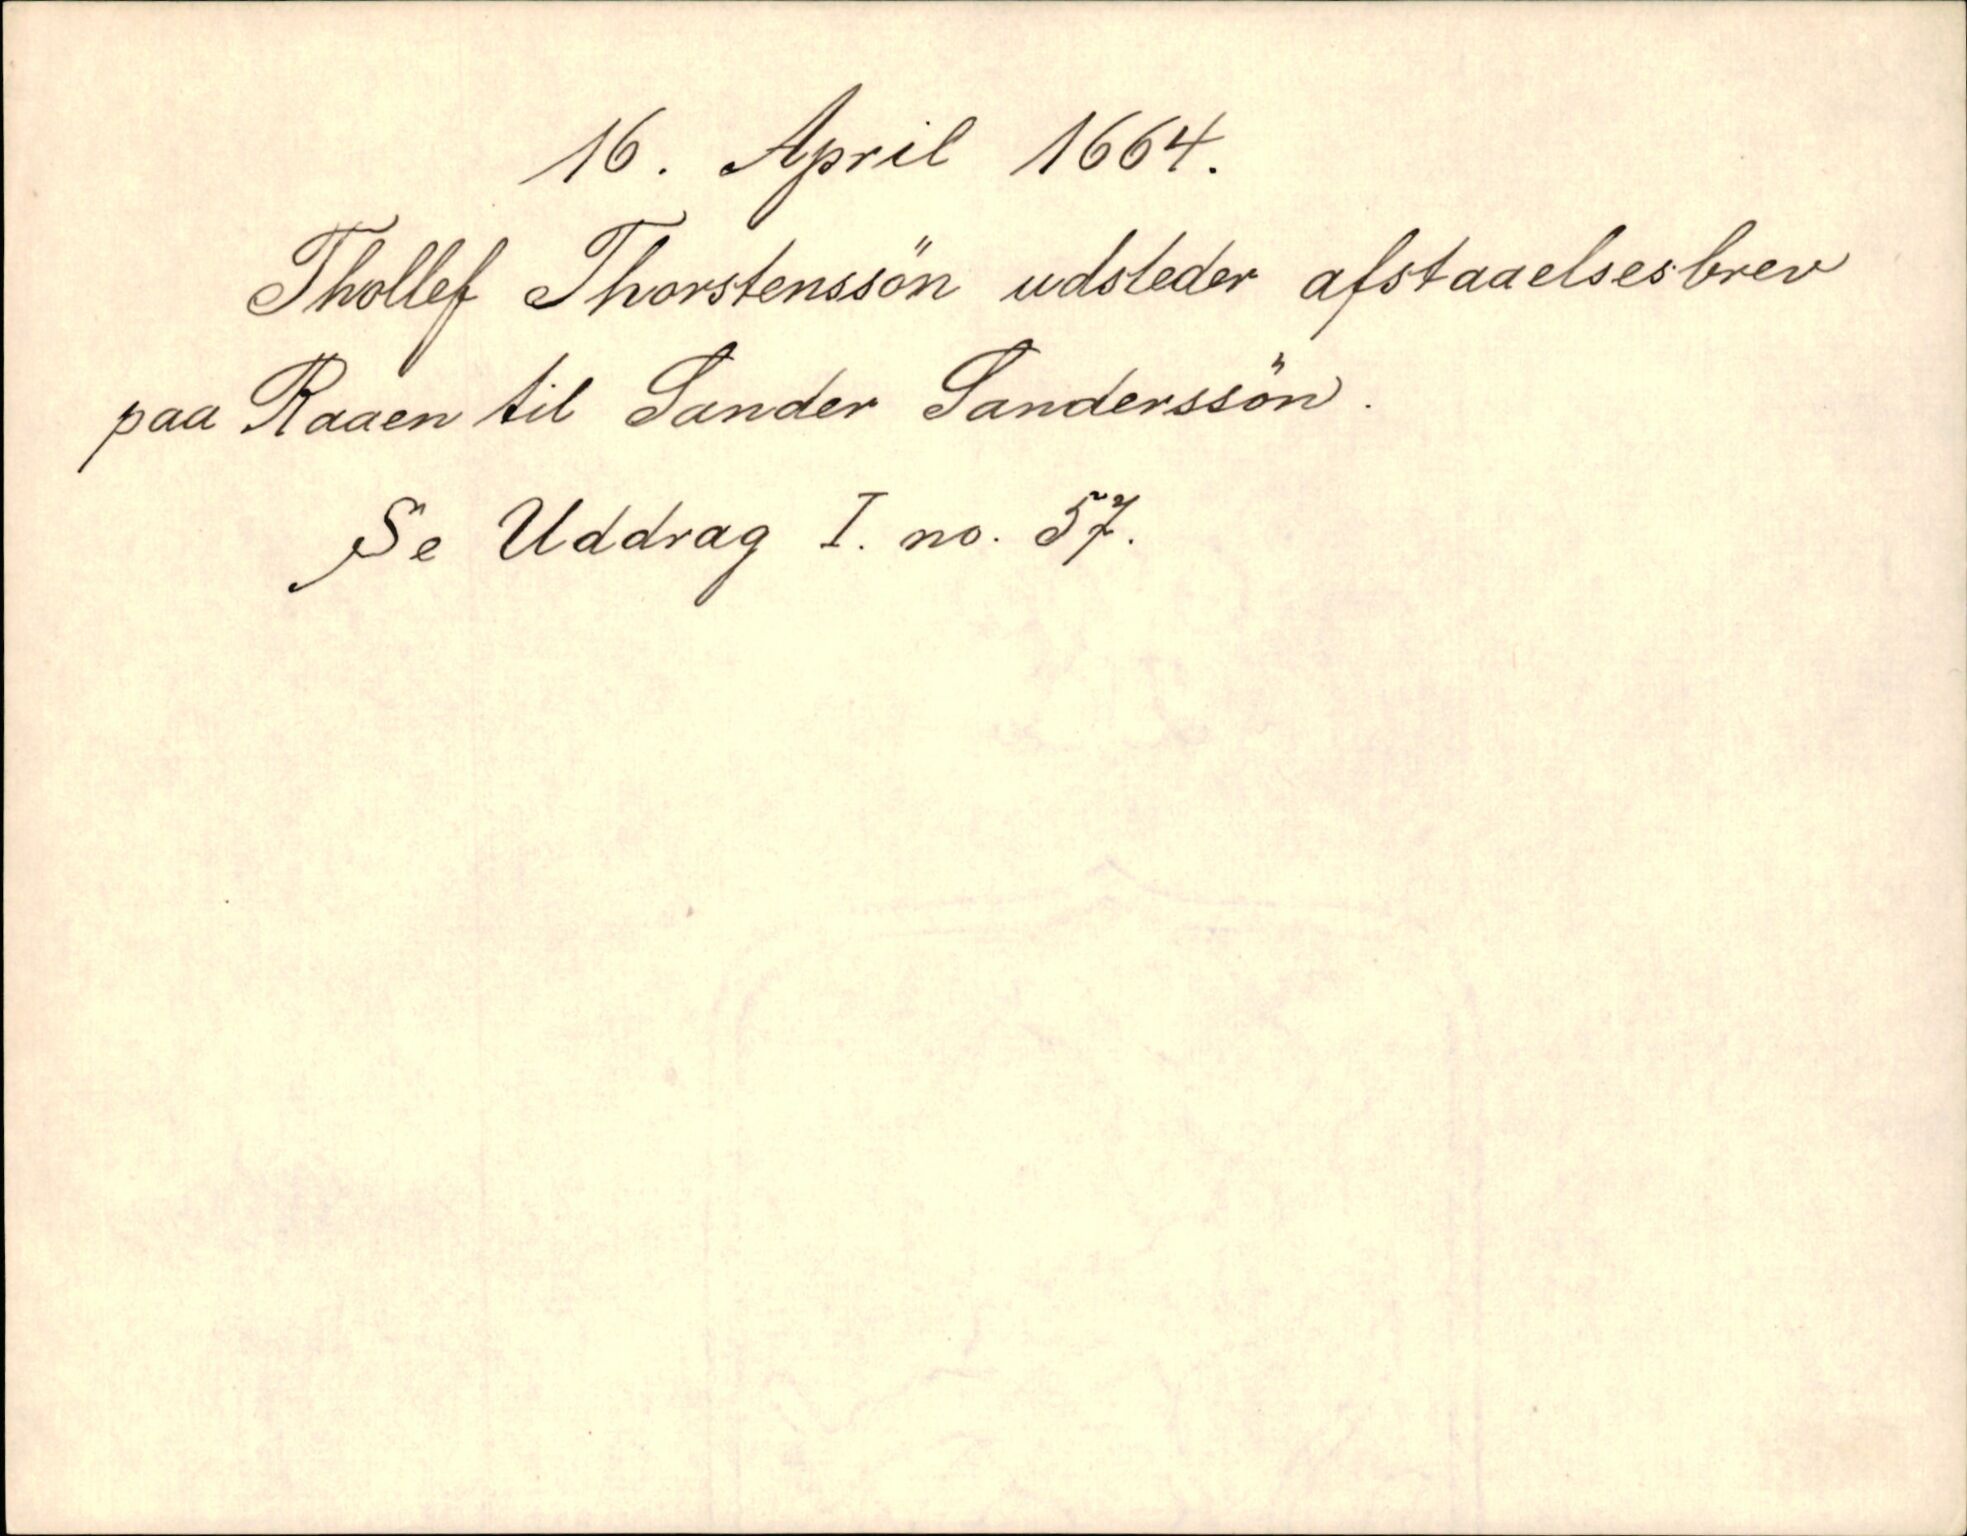 16. April 1664.
Thollef Thorstenssön udsteder afstaaelsesbrev
paa Raaen til Sander Sanderssön.
Se Uddrag I. no. 57.